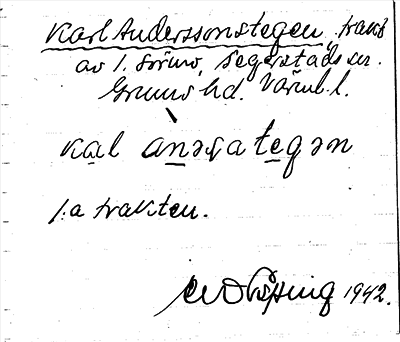 Karl Anderssonstegen, trakt
av l. Törne, Segerstads sn.
Grums hd. Värml. l.
kal anəʂategən
f. a trakten.
1942.